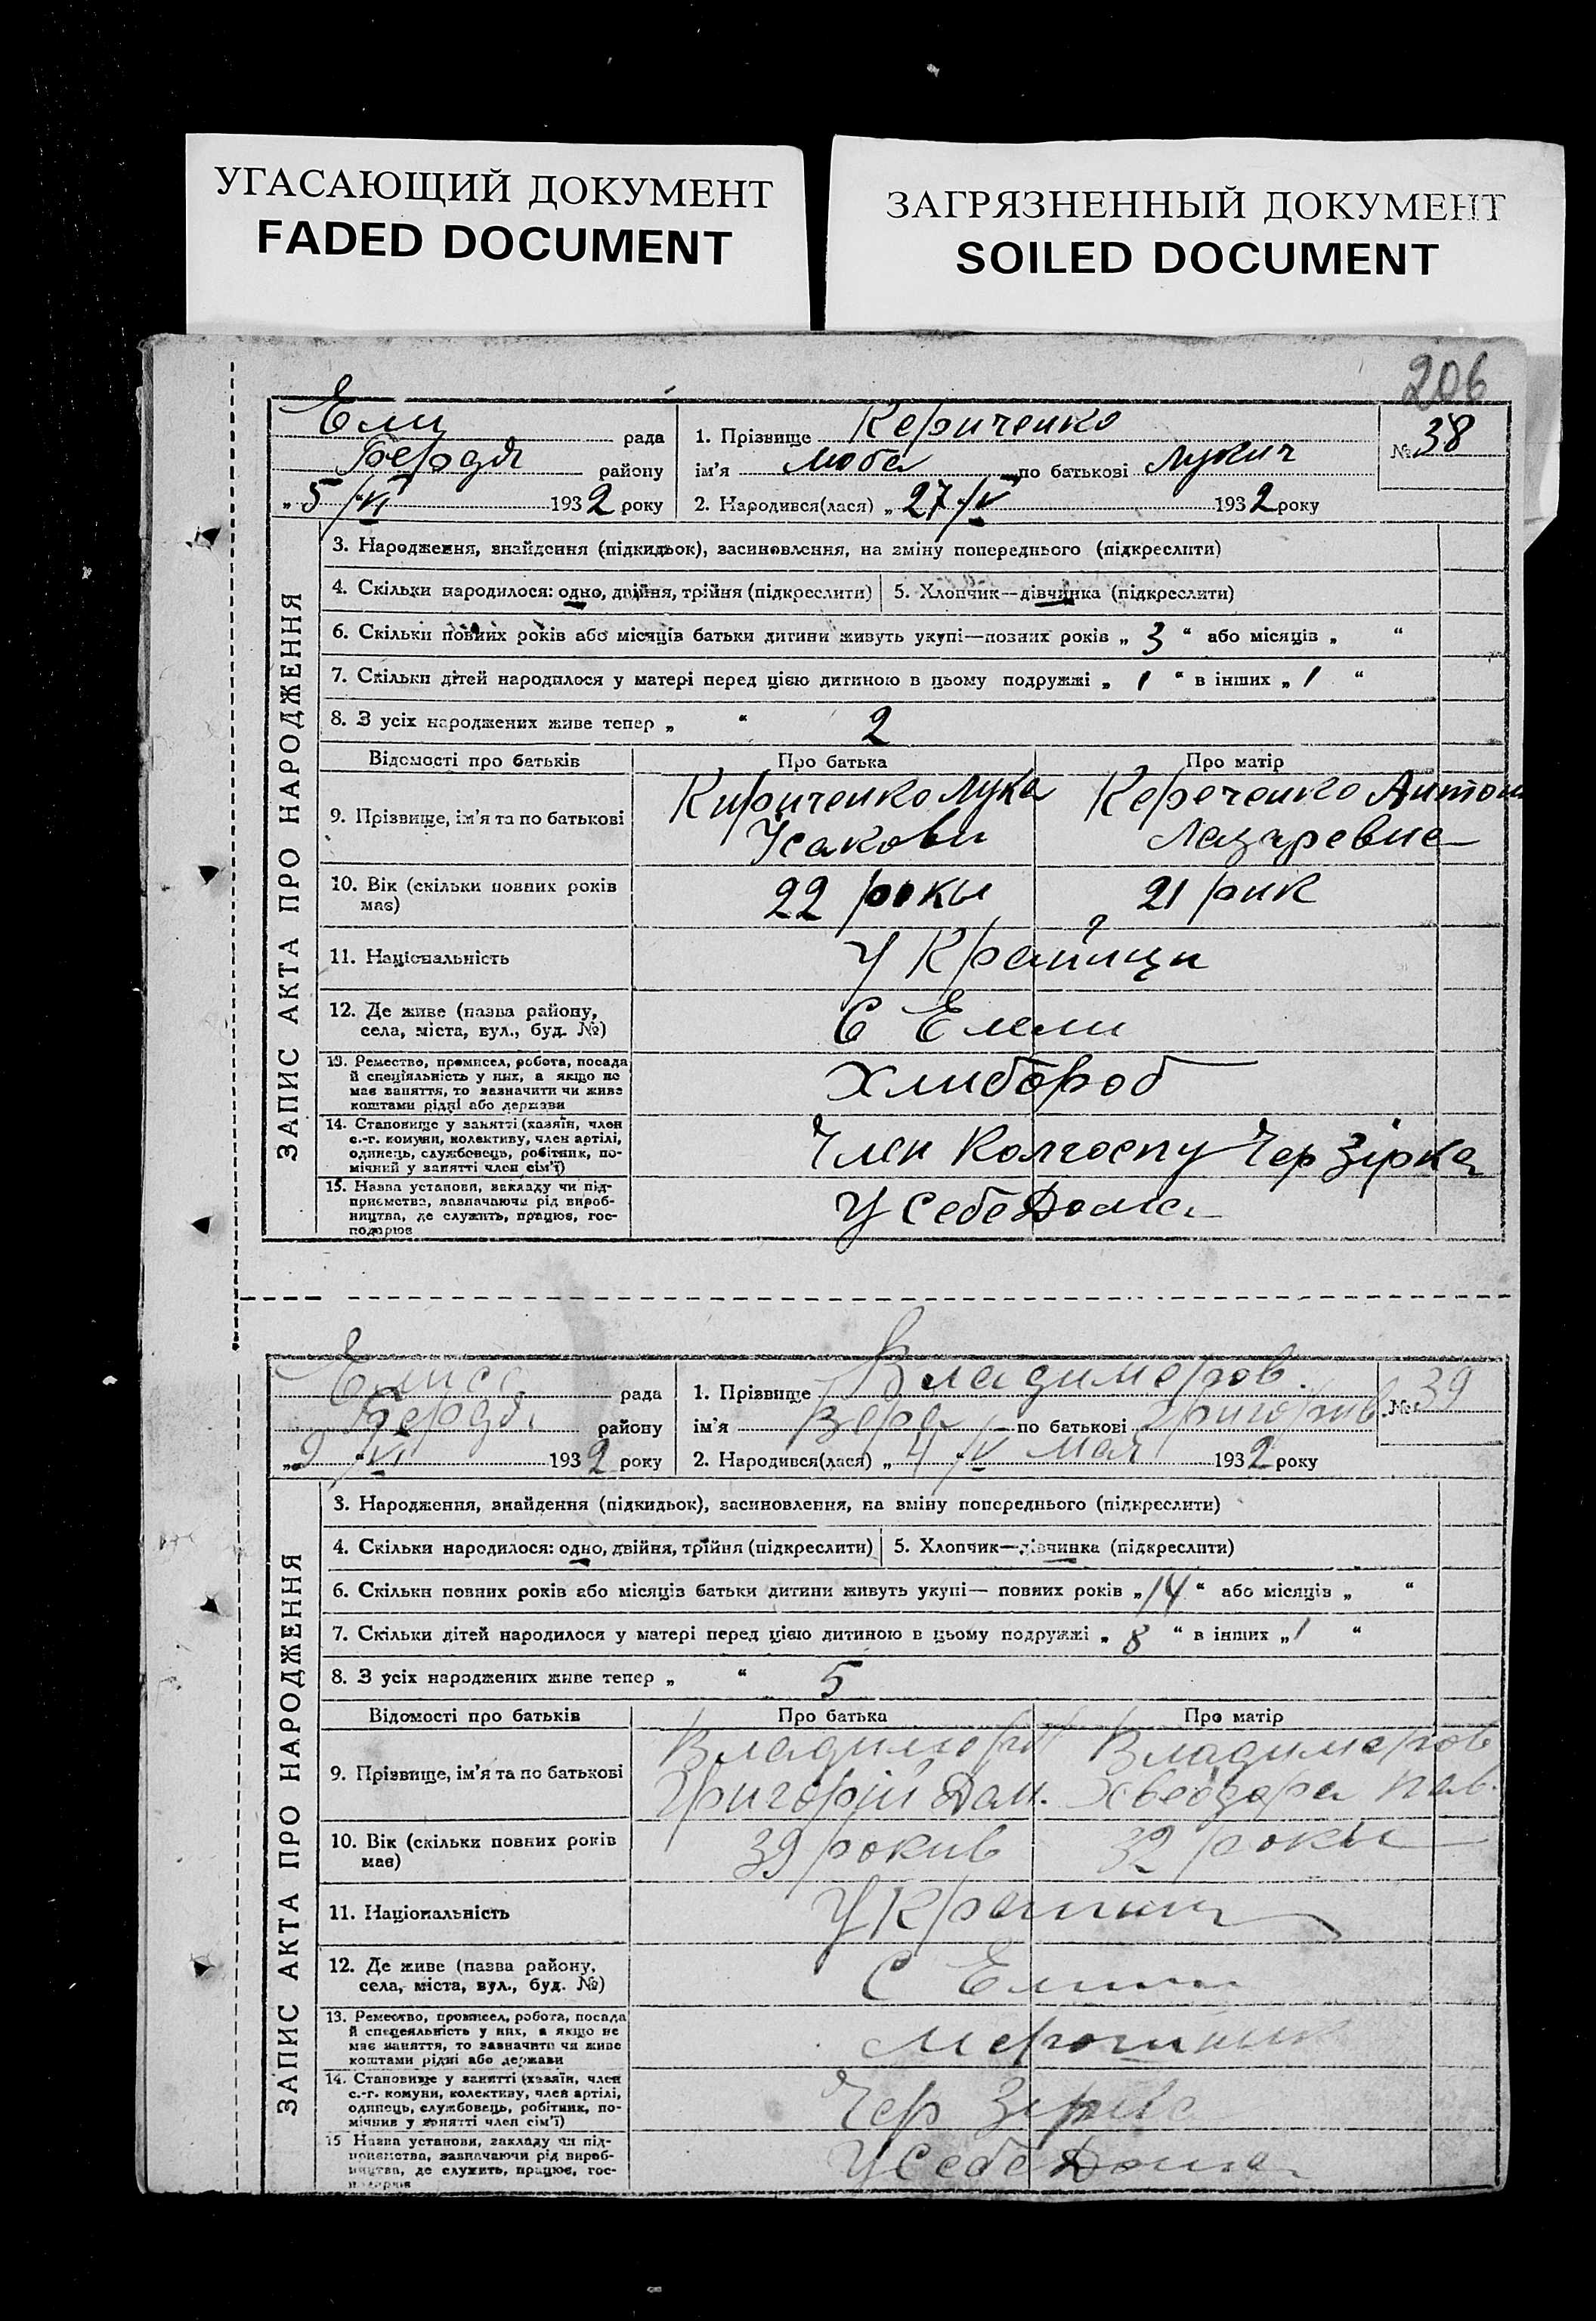 УГАСАЮЩИЙ ДОКУМЕНТ
FADED DOCUMENT
ЗАГРЯЗНЕННЫЙ ДОКУМЕНТ
SOILED DOCUMENT
206
ЗАПИС АКТА ПРО НАРОДЖЕННЯ
Ели рада
Бердя району
„5/VI 1932 року
1. Прізвище Кериченко
ім'я Люба по батькові Лукич
2. Народився(лася) „27/V 1932 року
№ 38
3. Народження, знайдення (підкидьок), засиновлення, на зміну попереднього (підкреслити)
4. Скільки народилося: одно, двійня, трійня (підкреслити) 5. Хлопчик—дівчинка (підкреслити)
6. Скільки повних років або місяців батьки дитини живуть укупі—повних років „ 3 “ або місяців „ “
7. Скільки дітей народилося у матері перед цією дитиною в цьому подружжі „ 1 “ в інших „ 1 “
8. З усіх народжених живе тепер „ “ 2
Відомості про батьків Про батька Про матір
9. Прізвище, ім'я та по батькові
Кириченко Лука
Усакови
Кереченко Антон
Лазаревна
10. Вік (скільки повних років
має)
22 рокы 21 рик
11. Національність Украйици
12. Де живе (назва району,
села, міста, вул., буд. №)
С Елели
13. Ремество, промисел, робота, посада
й спеціяльність у них, а якщо не
має заняття, то зазначити чи живе
коштами рідні або держави
Хлибороб
14. Становище у занятті (хазяїн, член
с.-г. комуни, колективу, член артілі,
одинець, службовець, робітник, по-
мічний у занятті член сім'ї)
Член Колгоспу Чер Зірка
15. Назва установи, закладу чи під-
приємства, зазначаючи рід вироб-
ництва, де служить, працює, гос-
подарює
У Себе Дома
ЗАПИС АКТА ПРО НАРОДЖЕННЯ
рада
Бердя району
„9/VI 1932 року
1. Прізвище Владимеров
ім'я Вера по батькові Григорив
2. Народився(лася) „ 4/V мая 1932 року
№ 39
3. Народження, знайдення (підкидьок), засиновлення, на зміну попереднього (підкреслити)
4. Скільки народилося: одно, двійня, трійня (підкреслити) 5. Хлопчик—дівчинка (підкреслити)
6. Скільки повних років або місяців батьки дитини живуть укупі— повних років „14 “ або місяців „ “
7. Скільки дітей народилося у матері перед цією дитиною в цьому подружжі „ 8 “ в інших „1 “
8. З усіх народжених живе тепер „ “ 5
Відомості про батьків Про батька Про матір
9. Прізвище, ім'я та по батькові
Григорій Дан.
Владимеров
Хведора Пав.
10. Вік (скільки повних років
має)
39 рокив 32 рокы
11. Національність
12. Де живе (назва району,
села, міста, вул., буд. №)
С
13. Ремество, промисел, робота, посада
й спецеяльність у них, а якщо не
має заняття, то зазначити чи живе
коштами рідні або держави
14. Становище у занятті (хазяїн, член
с.-г. комуни, колективу, член артілі,
одинець, службовець, робітник, по-
мічник у занятті член сім'ї)
Чер Зирка
15 Назва установи, закладу чи під-
приємства, зазначаючи рід вироб-
ництва, де служить, працює, гос-
подарює
У Себе Дома